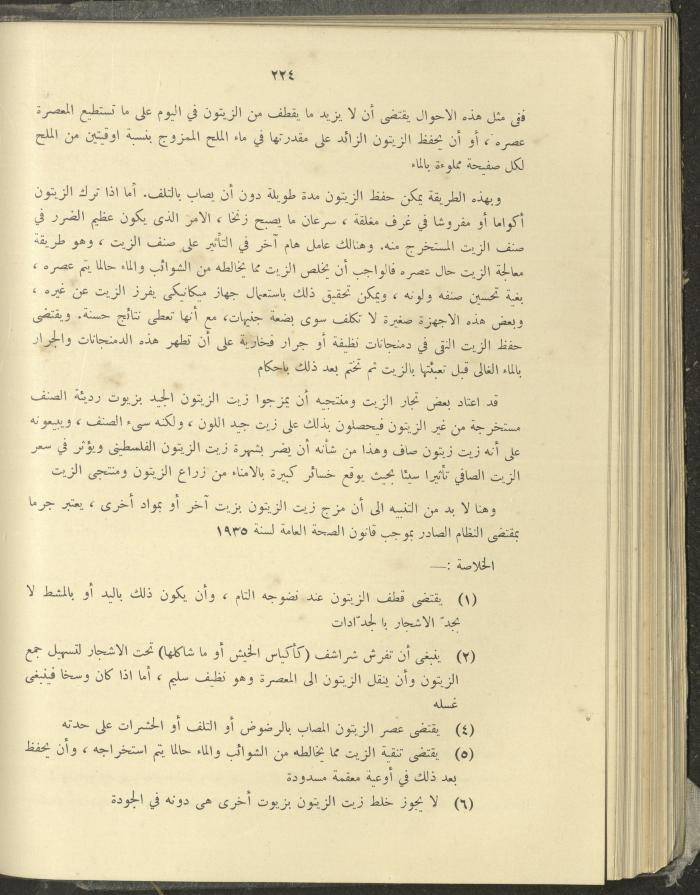 ٢٢٤
ففى مثل هذه الاحوال يقتضى أن لا يزيد ما يقطف من الزيتون في اليوم على ما تستطيع المعصرة
عصره ، أو أن يحفظ الزيتون الزائد على مقدرتها في ماء الملح الممزوج بنسبة اوقيتين من الملح
لكل صفيحة مملوءة بالماء
وبهذه الطريقة يمكن حفظ الزيتون مدة طويلة دون أن يصاب بالتلف. أما اذا ترك الزيتون
أكواما أو مفروشا في غرف مغلقة ، سرعان ما يصبح زنخا ، الامر الذى يكون عظيم الضرر في
صنف الزيت المستخرج منه. وهنالك عامل هام آخر في التأثير على صنف الزيت ، وهو طريقة
معالجة الزيت حال عصره فالواجب أن يخلص الزيت مما يخالطه من الشوائب والماء حالما يتم عصره ،
بغية تحسين صنفه ولونه ، ويمكن تحقيق ذلك باستعمال جهاز ميكانيكى يفرز الزيت عن غيره ،
وبعض هذه الاجهزة صغيرة لا تكلف سوى بضعة جنيهات، مع أنها تعطى نتائج حسنة. ويقتضى
حفظ الزيت النقى في دمنجانات نظيفة أو جرار فخارية على أن تطهر هذه الدمنجانات والجرار
بالماء الغالى قبل تعبئتها بالزيت ثم تختم بعد ذلك باحكام
قد اعتاد بعض تجار الزيت ومنتجيه أن يمزجوا زيت الزيتون الجيد بزيوت رديئة الصنف
مستخرجة من غير الزيتون فيحصلون بذلك على زيت جيد اللون ، ولكنه سىء الصنف ، ويبيعونه
على أنه زيت زيتون صاف وهذا من شأنه أن يضر بشهرة زيت الزيتون الفلسطينى ويؤثر في سعر
الزيت الصافي تأثيرا سيئا بحيث يوقع خسائر كبيرة بالامناء من زراع الزيتون ومنتجى الزيت
وهنا لا بد من التنبيه الى أن مزج زيت الزيتون بزيت آخر أو بمواد أخرى ، يعتبر جرما
بمقتضى النظام الصادر بموجب قانون الصحة العامة لسنة ١٩٣٥
الخلاصة :—
(١) يقتضى قطف الزيتون عند نضوجه التام ، وأن يكون ذلك باليد أو بالمشط لا
بجدّ الاشجار بالجدّادات
(٢) ينبغى أن تفرش شراشف (كأكياس الخيش أو ما شاكلها) تحت الاشجار لتسهيل جمع
الزيتون وأن ينقل الزيتون الى المعصرة وهو نظيف سليم ، أما اذا كان وسخا فينبغى
غسله
(٤) يقتضى عصر الزيتون المصاب بالرضوض أو التلف أو الحشرات على حدته
(٥) يقتضى تنقية الزيت مما يخالطه من الشوائب والماء حالما يتم استخراجه ، وأن يحفظ
بعد ذلك في أوعية معقمة مسدودة
(٦) لا يجوز خلط زيت الزيتون بزيوت أخرى هى دونه في الجودة